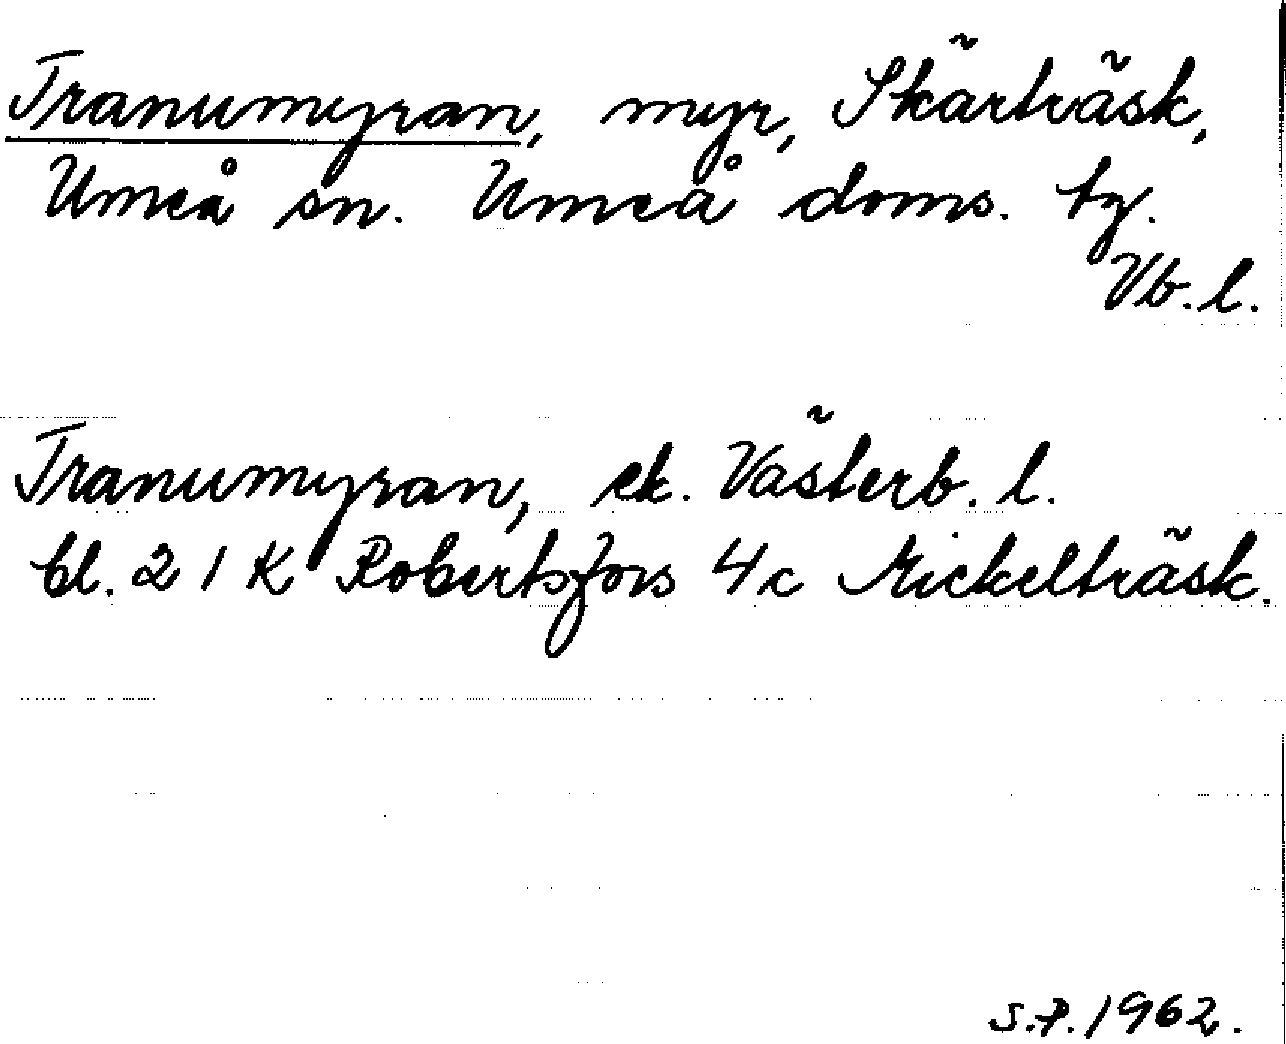 Tranumyran, myr, Skärträsk,
Umeå sn. Umeå doms. tg.
Vb. l.
Tranumyran, ek. Västerb. l.
bl. 21 K Robertsfors 4c Nickelträsk.
S.P. 1962.